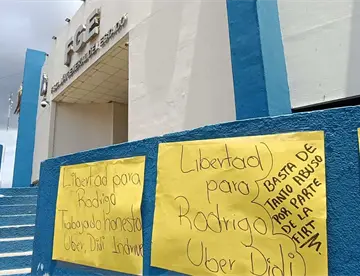 FGE
Libertad para
Rodrigo
Trabajado honesto
Uber, Didi Indrive
Libertad
para
Rodrigo
Uber Didi
BASTA DE
TANTO ABUSO
POR PARTE
DE LA
FIRT